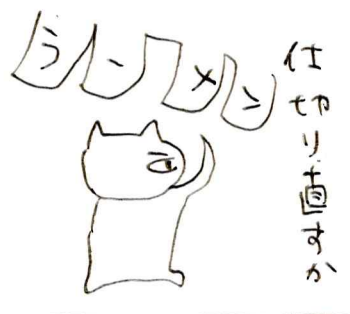 ラーメン
仕切り直すか